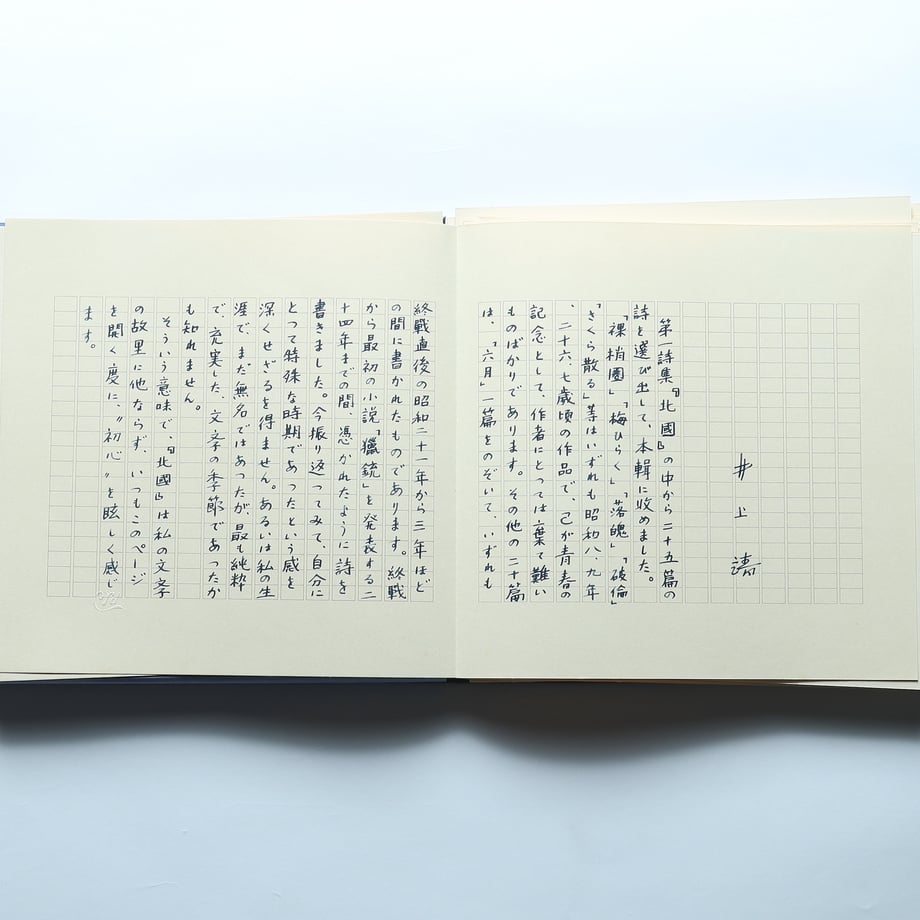 井上靖
第一詩集『北國』の中から二十五篇の
詩を選び出して、本輯に收めました。
「裸梢園」「梅ひらく」「落魄」「破倫」
「さくら散る」等はいずれも昭和八、九年
、二十六、七歳頃の作品で、己が青春の
記念として、作者にとっては棄て難い
ものばかりであります。その他の二十篇
は、「六月」一篇をのぞいて、いずれも
終戦直後の昭和二十一年から三年ほど
の間に書かれたものであります。終戦
から最初の小説「獵銃」を発表する二
十四年までの間、憑かれたように詩を
書きました。今振り返ってみて、自分に
とって特殊な時期であったという感を
深くせざるを得ません。あるいは私の生
涯で、まだ無名ではあったが、最も純粋
で、充実した、文学の季節であったか
も知れません。
そういう意味で、『北國』は私の文学
の故里に他ならず、いつもこのページ
を開く度に、〝初心〟を眩しく感じ
ます。